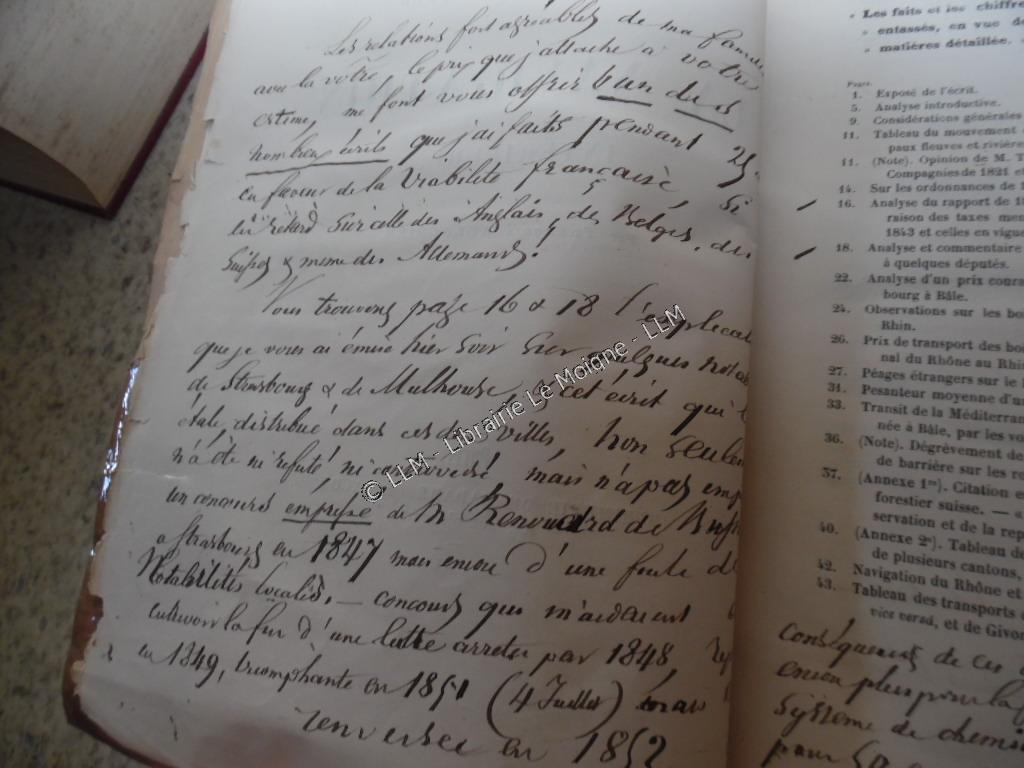 Les relations fort agréables de ma famille
avec la vôtre, le prix que j'attache à votre
estime, me font vous offrir un des
nombreux écrits que j'ai faits pendant 25
en faveur de la Viabilité française, si
en retard sur celle des Anglais, des Belges, des
Suisses & même des Allemands!
Vous trouverez page 16 & 18 l'
que je vous ai émise hier soir sur quelques
de Strasbourg & de Mulhouse cet écrit qui
été distribué dans ces villes, non seulem
n'a été ni réfuté, ni mais n'a pas emp
un concours empressé de Mr Renouard de
à Strasbourg en 1847 mais encore d'une foule de
Notabilités locales, — concours qui m'aidèrent
la fin d'une lutte arrêtée par 1848,
en 1849, triomphante en 1851 (4 Juillet) mais
renversée en 1852
» Les faits et les chiffre
» entassés, en vue de
» matières détaillée.
Pages.
1. Exposé de l'écrit.
5. Analyse introductive.
9. Considérations générales
11. Tableau du mouvement
paux fleuves et rivière
11. (Note). Opinion de M. T
Compagnies de 1821 et
14. Sur les ordonnances de 1
16. Analyse du rapport de 18
raison des taxes men
1843 et celles en vigue
18. Analyse et commentaire
à quelques députés.
22. Analyse d'un prix coura
bourg à Bâle.
24. Observations sur les bo
Rhin.
26. Prix de transport des bo
nal du Rhône au Rhi
27. Péages étrangers sur le
31. Pesanteur moyenne d'un
33. Transit de la Méditerran
née à Bâle, par les vo
36. (Note). Dégrèvement de
de barrière sur les ro
37. (Annexe 1re). Citation e
forestier suisse. — « 
servation et de la rep
40. (Annexe 2e). Tableau de
de plusieurs cantons,
42. Navigation du Rhône et
43. Tableau des transports
vice versâ, et de Givor
Conséquent de ces
encore plus pour la
Système de chemin
pour
© LLM - Librairie Le Moigne - LLM